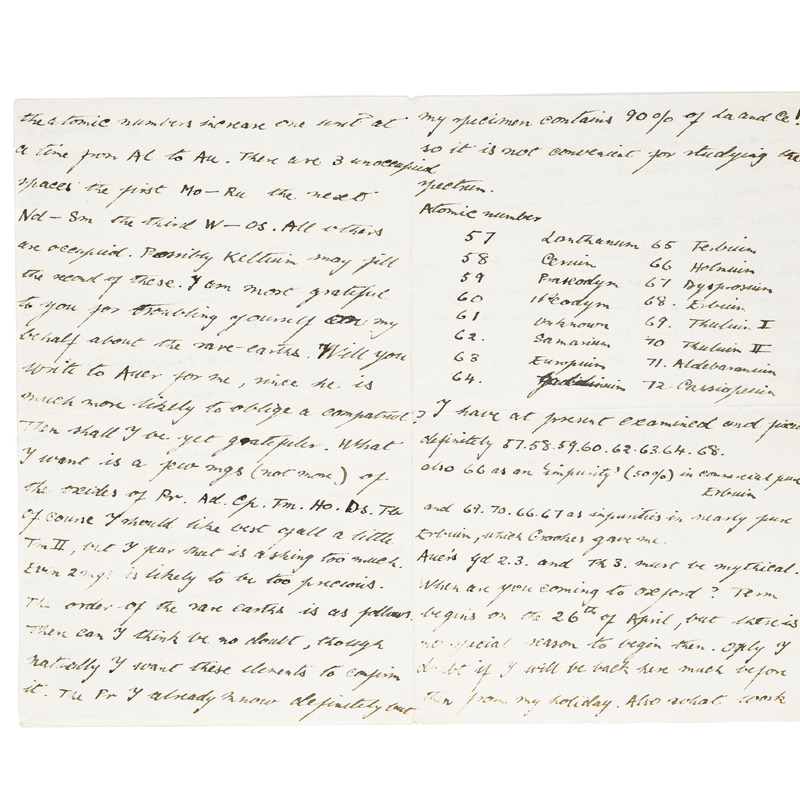 the atomic numbers increase one unit at
a time from Al to Au. There are 3 unoccupied
spaces the first Mo – Ru the next
Nd – Sm the third W – Os. All others
are occupied. Possibly Keltium may fill
the second of these. I am most grateful
to you for troubling yourself on my
behalf about the rare-earths. Will you
write to Auer for me, since he is
much more likely to oblige a compatriot?
Then shall I be yet gratefuler. What
I want is a few mgs (not more) of
the oxides of Pr. Ad. Cp. Tm. Ho. Ds. Tb
Of course I should like best of all a little
Tm II, but I fear that is asking too much.
Even 2 mgs is likely to be too precious.
The order of the rare earths is as follows.
There can I think be no doubt, though
natually I want these elements to confirm
it. The Pr I already know definitely but
my specimen contains 90% of La and Ce!
so it is not convenient for studying the
spectrum.
Atomic number
57 Lanthanum 65 Terbium
58 Cerium 66 Holmium
59 Praseodym 67 Dysprosium
60 Neodym 68. Erbium
61 Unknown 69. Thulium I
62. Samarium 70 Thulium II
63 Europium 71. Aldebaranium
64. Gadolinium 72. Cassiopeium
I have at present examined and
definitely 57.58.59.60.62.63.64. 68.
also 66 as an 'impurity' (50%) in commercial pure
Erbium
and 69.70.66.67 as impurities in nearly pure
Erbium, which Crookes gave me.
Auer's Gd 2.3. and Tb 3. must be mythical.
When are you coming to Oxford? Term
begins on the 26th of April, but there is
no special reason to begin then. Only I
doubt if I will be back here much before
then from my holiday. Also what work